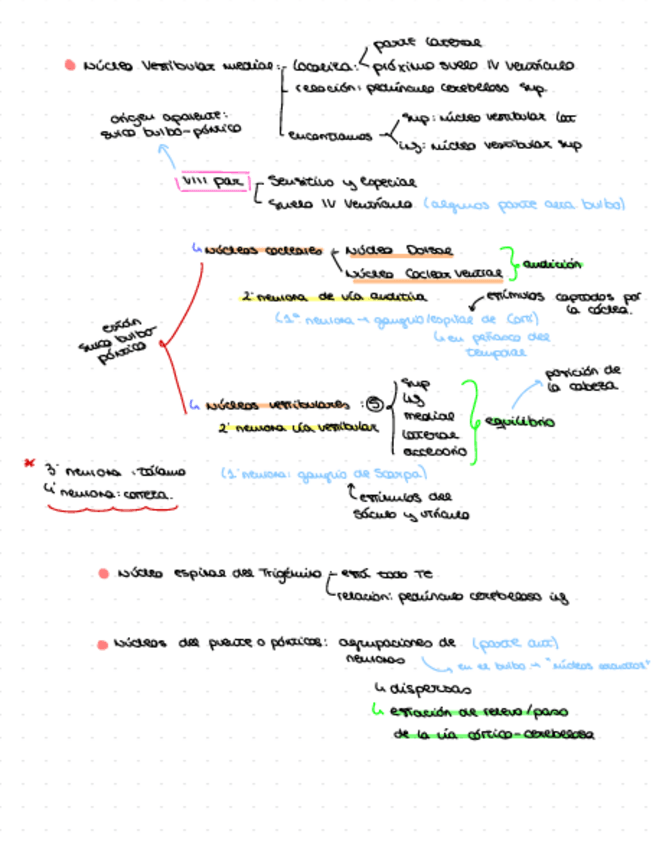 parte lateral
Núcleo Vestibular medial: Localiza: próximo suelo IV ventrículo
relación: pedúnculo cerebeloso sup.
origen aparente:
surco bulbo-póntico
encontramos sup: núcleo vestibular lat
inf: núcleo vestibular sup
VIII par Sensitivo y especial
Suelo IV Ventrículo (algunos parte alta bulbo)
↳ Núcleos cocleares Núcleo Dorsal
Núcleo Coclear ventral audición
2ª neurona de vía auditiva estímulos captados por
la cóclea.
(1ª neurona → ganglio espiral de Corti)
↳ en peñasco del
temporal
están
surco bulbo-
póntico
posición de
la cabeza
↳ Núcleos vestibulares: 5
2ª neurona vía vestibular
sup
inf
medial
lateral
accesorio
equilibrio
* 3ª neurona: tálamo (1ª neurona: ganglio de Scarpa)
4ª neurona: corteza.
estímulos del
sáculo y utrículo
Núcleo espinal del Trigémino está todo TE
relación: pedúnculo cerebeloso inf
Núcleos del puente o pónticos: agrupaciones de (parte ant)
neuronas en el bulbo → "núcleos arcuatos"
↳ dispersas
↳ estación de relevo/paso
de la vía córtico-cerebelosa